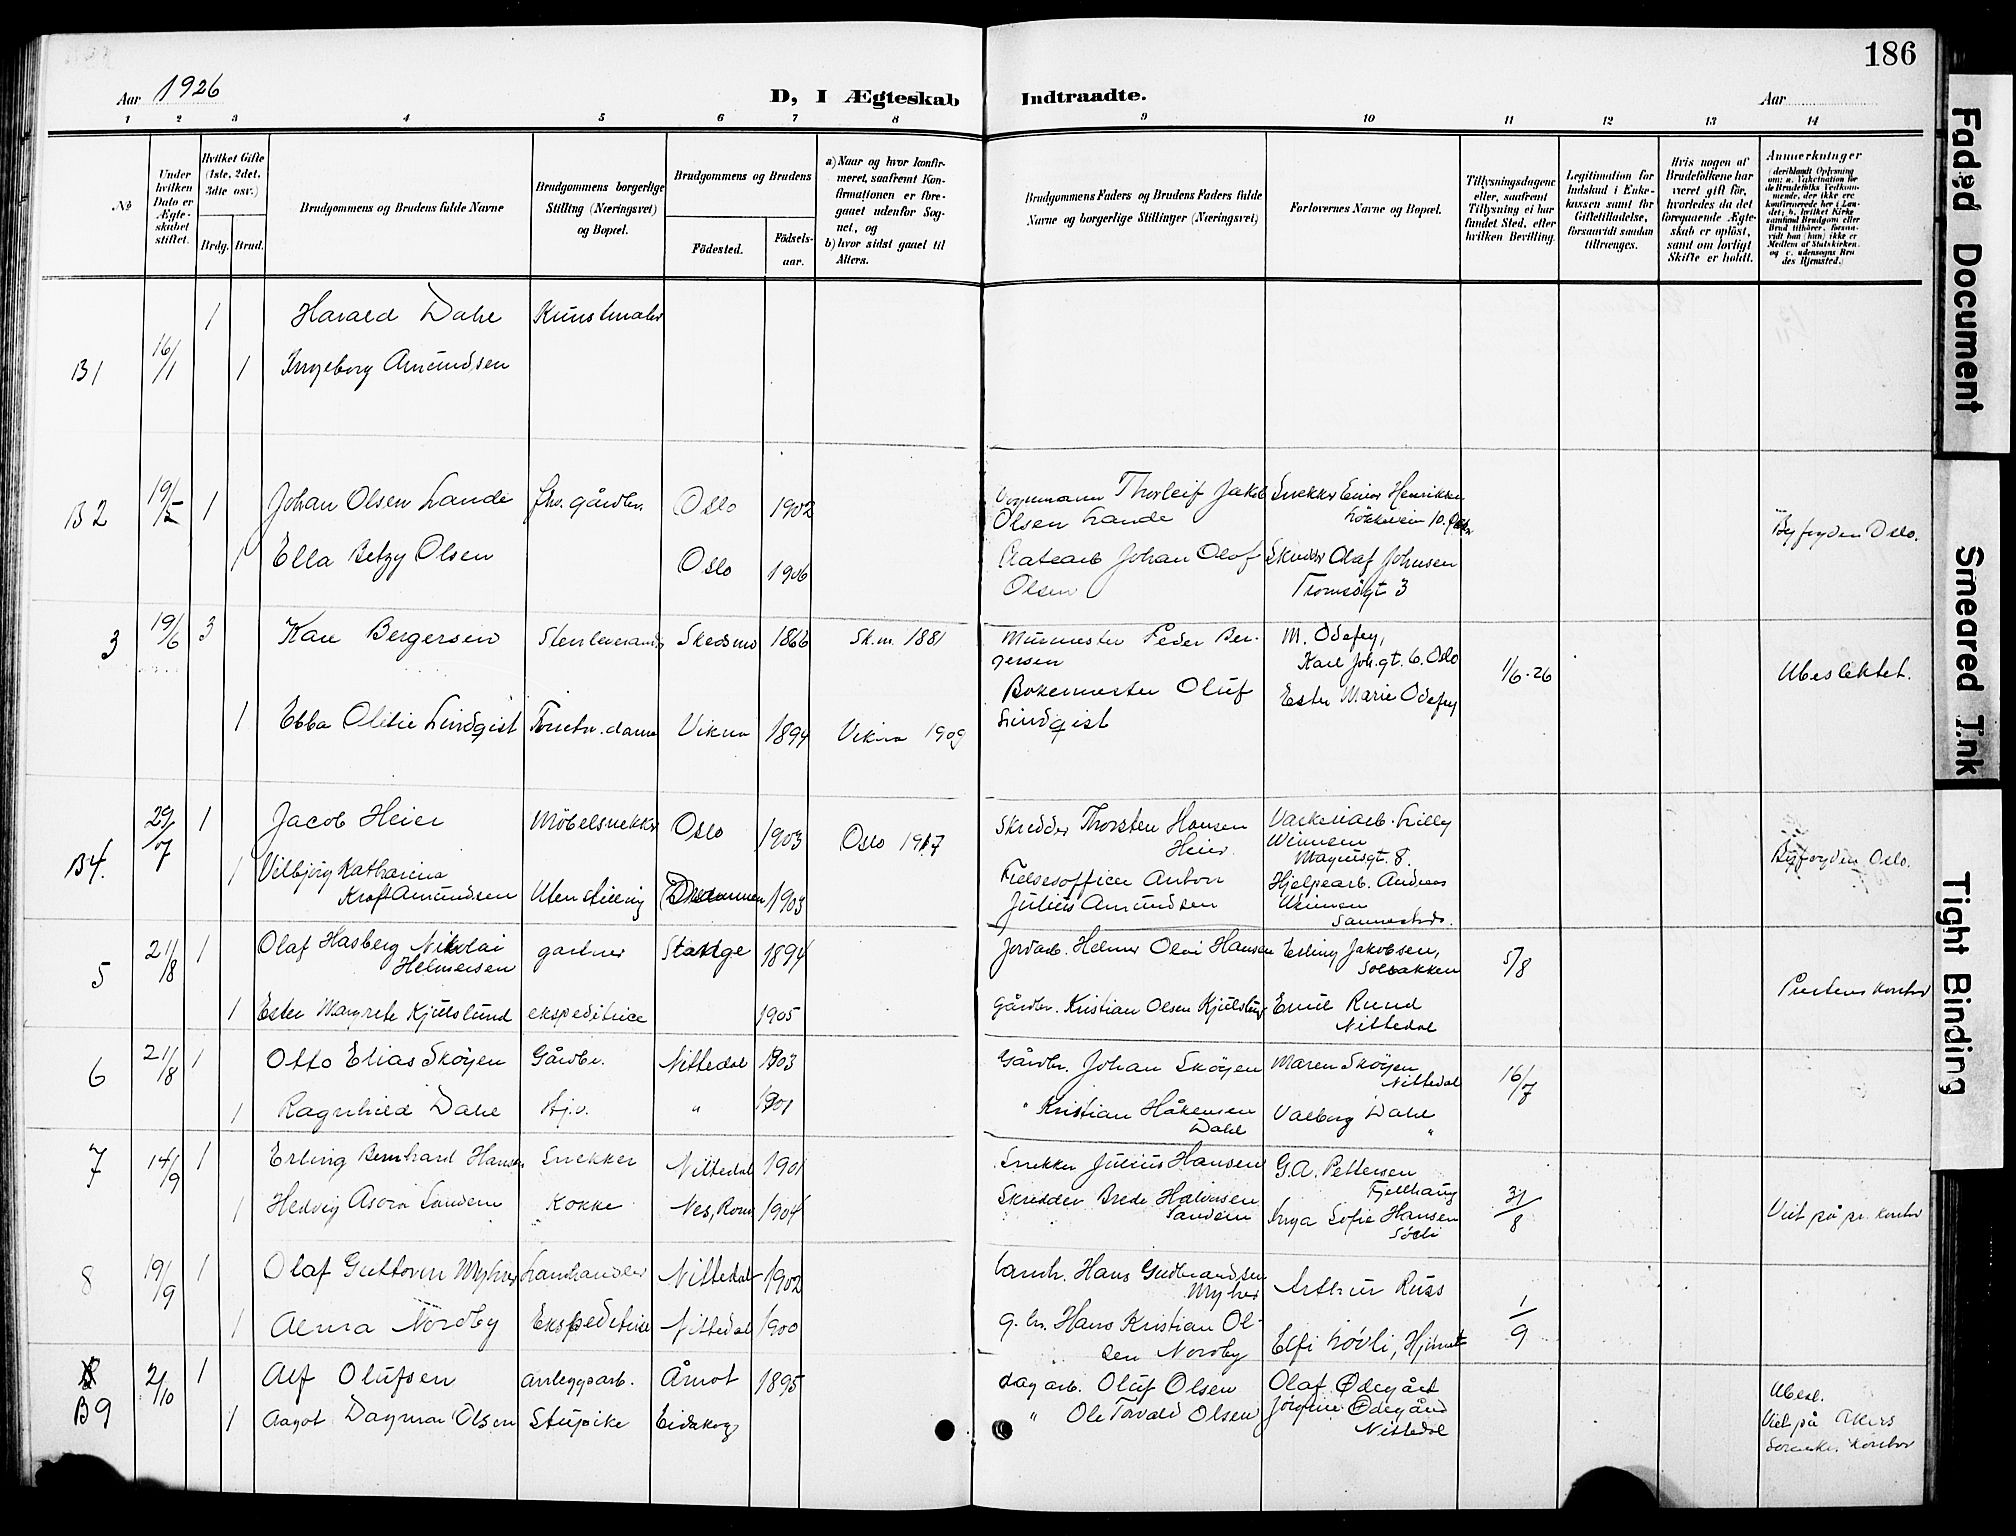 186
Aar 1926
D, I Ægteskab Indtraadte.
Aar
1 2 3 4 5 6 7 8 9 10 11 12 13 14
No
Under hvilken Dato er Ægteskabet stiftet.
Hvilket Gifte (1ste, 2det, 3dte osv.)
Brdg. Brud.
Brudgommens og Brudens fulde Navne
Brudgommens borgerlige Stilling (Næringsvei) og Bopæl.
Brudgommens og Brudens
Födested.
Födsels-aar.
a) Naar og hvor konfirmeret, saafremt Konfirmationen er foregaaet udenfor Sognet, og
b) hvor sidst gaaet til Alters.
Brudgommens Faders og Brudens Faders fulde Navne og borgerlige Stillinger (Næringsvei)
Forlovernes Navne og Bopæl.
Tillysningsdagene eller, saafremt Tillysning ei har fundet Sted, efter hvilken Bevilling.
Legitimation for Indskud i Enkekassen samt for Giftetilladelse, forsaavidt saadan tiltrænges.
Hvis nogen af Brudefolkene har været gift för, hvorledes da det foregaaende Ægteskab er oplöst, samt om lovligt Skifte er holdt.
Anmerkninger
B1 16/1 1 Harald Dahl Kunstmaler
1 Ingeborg Amundsen
B2 19/5 1 Johan Olsen Lande fhv. gårdbr. Oslo 1902 Vognmann Thorleif Jakob Olsen Lande Snekker Einar Henriksen Byfogden Oslo.
1 Ella Betzy Olsen Oslo 1906 Platearb Johan Olof Olsen Skredder Olaf Johnsen Tromsögt 3
3 19/6 3 Karl Bergersen Stenleverandör Skedsmo 1866 Sk.m. 1881 Murmester Peder Bergersen M. Odefey, Karl Joh. gt. 6. Oslo 1/6.26 Ubeslektet.
1 Ebba Olilie Lindqist Vikna 1894 Vikna 1909 Oluf Lindqist Ester Marie Odefey
B4. 29/7 1 Jacob Heier Möbelsnekker Oslo 1903 Oslo 1917 Skredder Thorsten Hansen Heier Lilly Magnusgt. 8. Byfogden Oslo.
1 Vilbjörg Katharina Kraft Amundsen Uten stilling Drammen 1903 Frelsesofficer Anton Julius Amundsen Hjelpearb. Andreas
5 21/8 1 Olaf Hasberg Nikolai Helmersen gartner Stange 1894 Jordarb. Helmer Olai Hansen Erling Jakobsen, Solbakken 5/8 Prestens kontor
1 Ester Margrete Kjulslund ekspeditrice 1905 Gårdbr. Kristian Olsen Kjulslund Emil Rund Nittedal
6 21/8 1 Otto Elias Skøyen Gårdbr. Nittedal 1903 Gårdbr. Johan Skøyen Maren Skøyen Nittedal 16/7
1 Ragnhild Dahl Hj.v. " 1901 " Kristian Håkensen Dahl Valborg Dahl "
7 14/9 1 Erling Bernhard Hansen Snekker Nittedal 1901 Snekker Julius Hansen G.A. Pettersen Fjellhaug 31/8 Viet på pr. kontor
1 Hedvig Asora Sandem Kokke Nes, Rom 1904 Skredder Brede Halvorsen Sandem Inga Sofie Hansen Sörli
8 19/9 1 Olaf Guttorm Myhrer Landhandler Nittedal 1902 Landh. Hans Gudbrandsen Myhrer Arthur Russ 1/9
1 Alma Nordby Ekspeditrice Nittedal 1900 g. br. Hans Kristian Olsen Nordby Elfi Lövli,
B9 2/10 1 Alf Olufsen anleggsarb. Åmot 1895 dagarb. Oluf Olsen Olaf Ødegård Ubesl. Viet på Akers kontor
1 Aagot Dagmar Olsen Stupike Eidskog " Ole Torvald Olsen Jörgine Ødegård Nittedal
Faded Document
Smeared Ink
Tight Binding